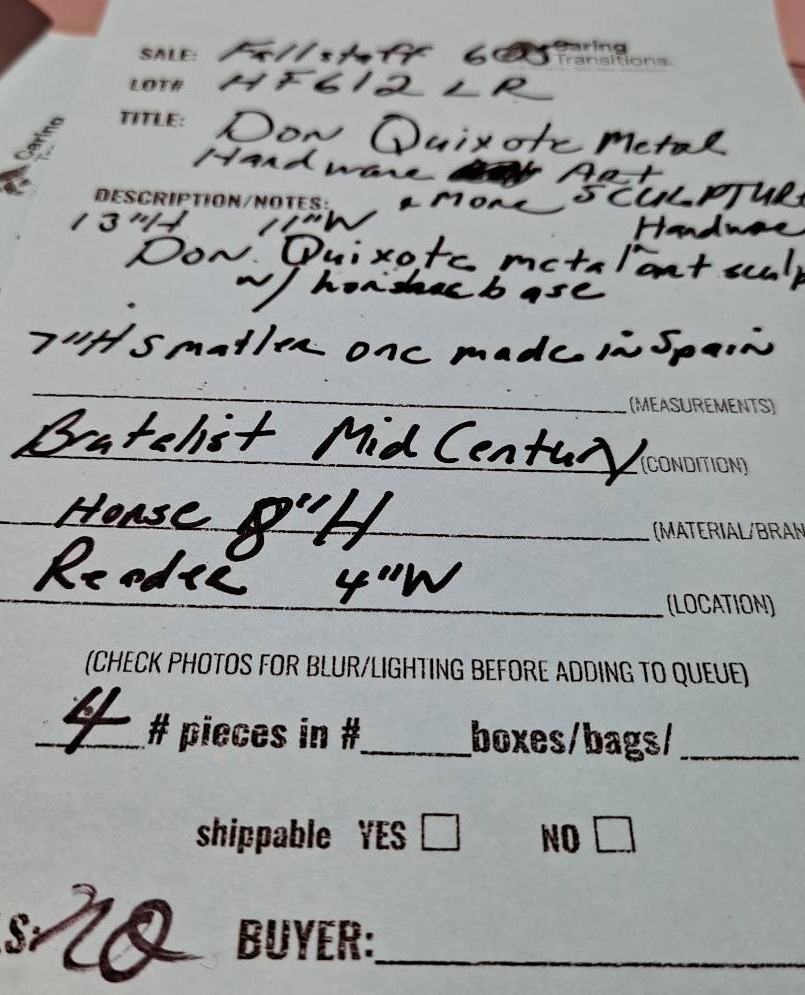 SALE: Fallstaff 605 Caring
Transitions
LOT# HF612 LR
TITLE: Don Quixote Metal
Hardware Art
& More SCULPTURE
DESCRIPTION/NOTES:
13"H 11"W Hardware
Don Quixote metal art sculp
w/ base
7"H Smaller one made in Spain
(MEASUREMENTS)
Brutelist Mid Century (CONDITION)
Horse 8"H (MATERIAL/BRAN
4"W
(LOCATION)
(CHECK PHOTOS FOR BLUR/LIGHTING BEFORE ADDING TO QUEUE)
4 # pieces in #_____boxes/bags/_____
shippable YES NO
S: BUYER:
Caring